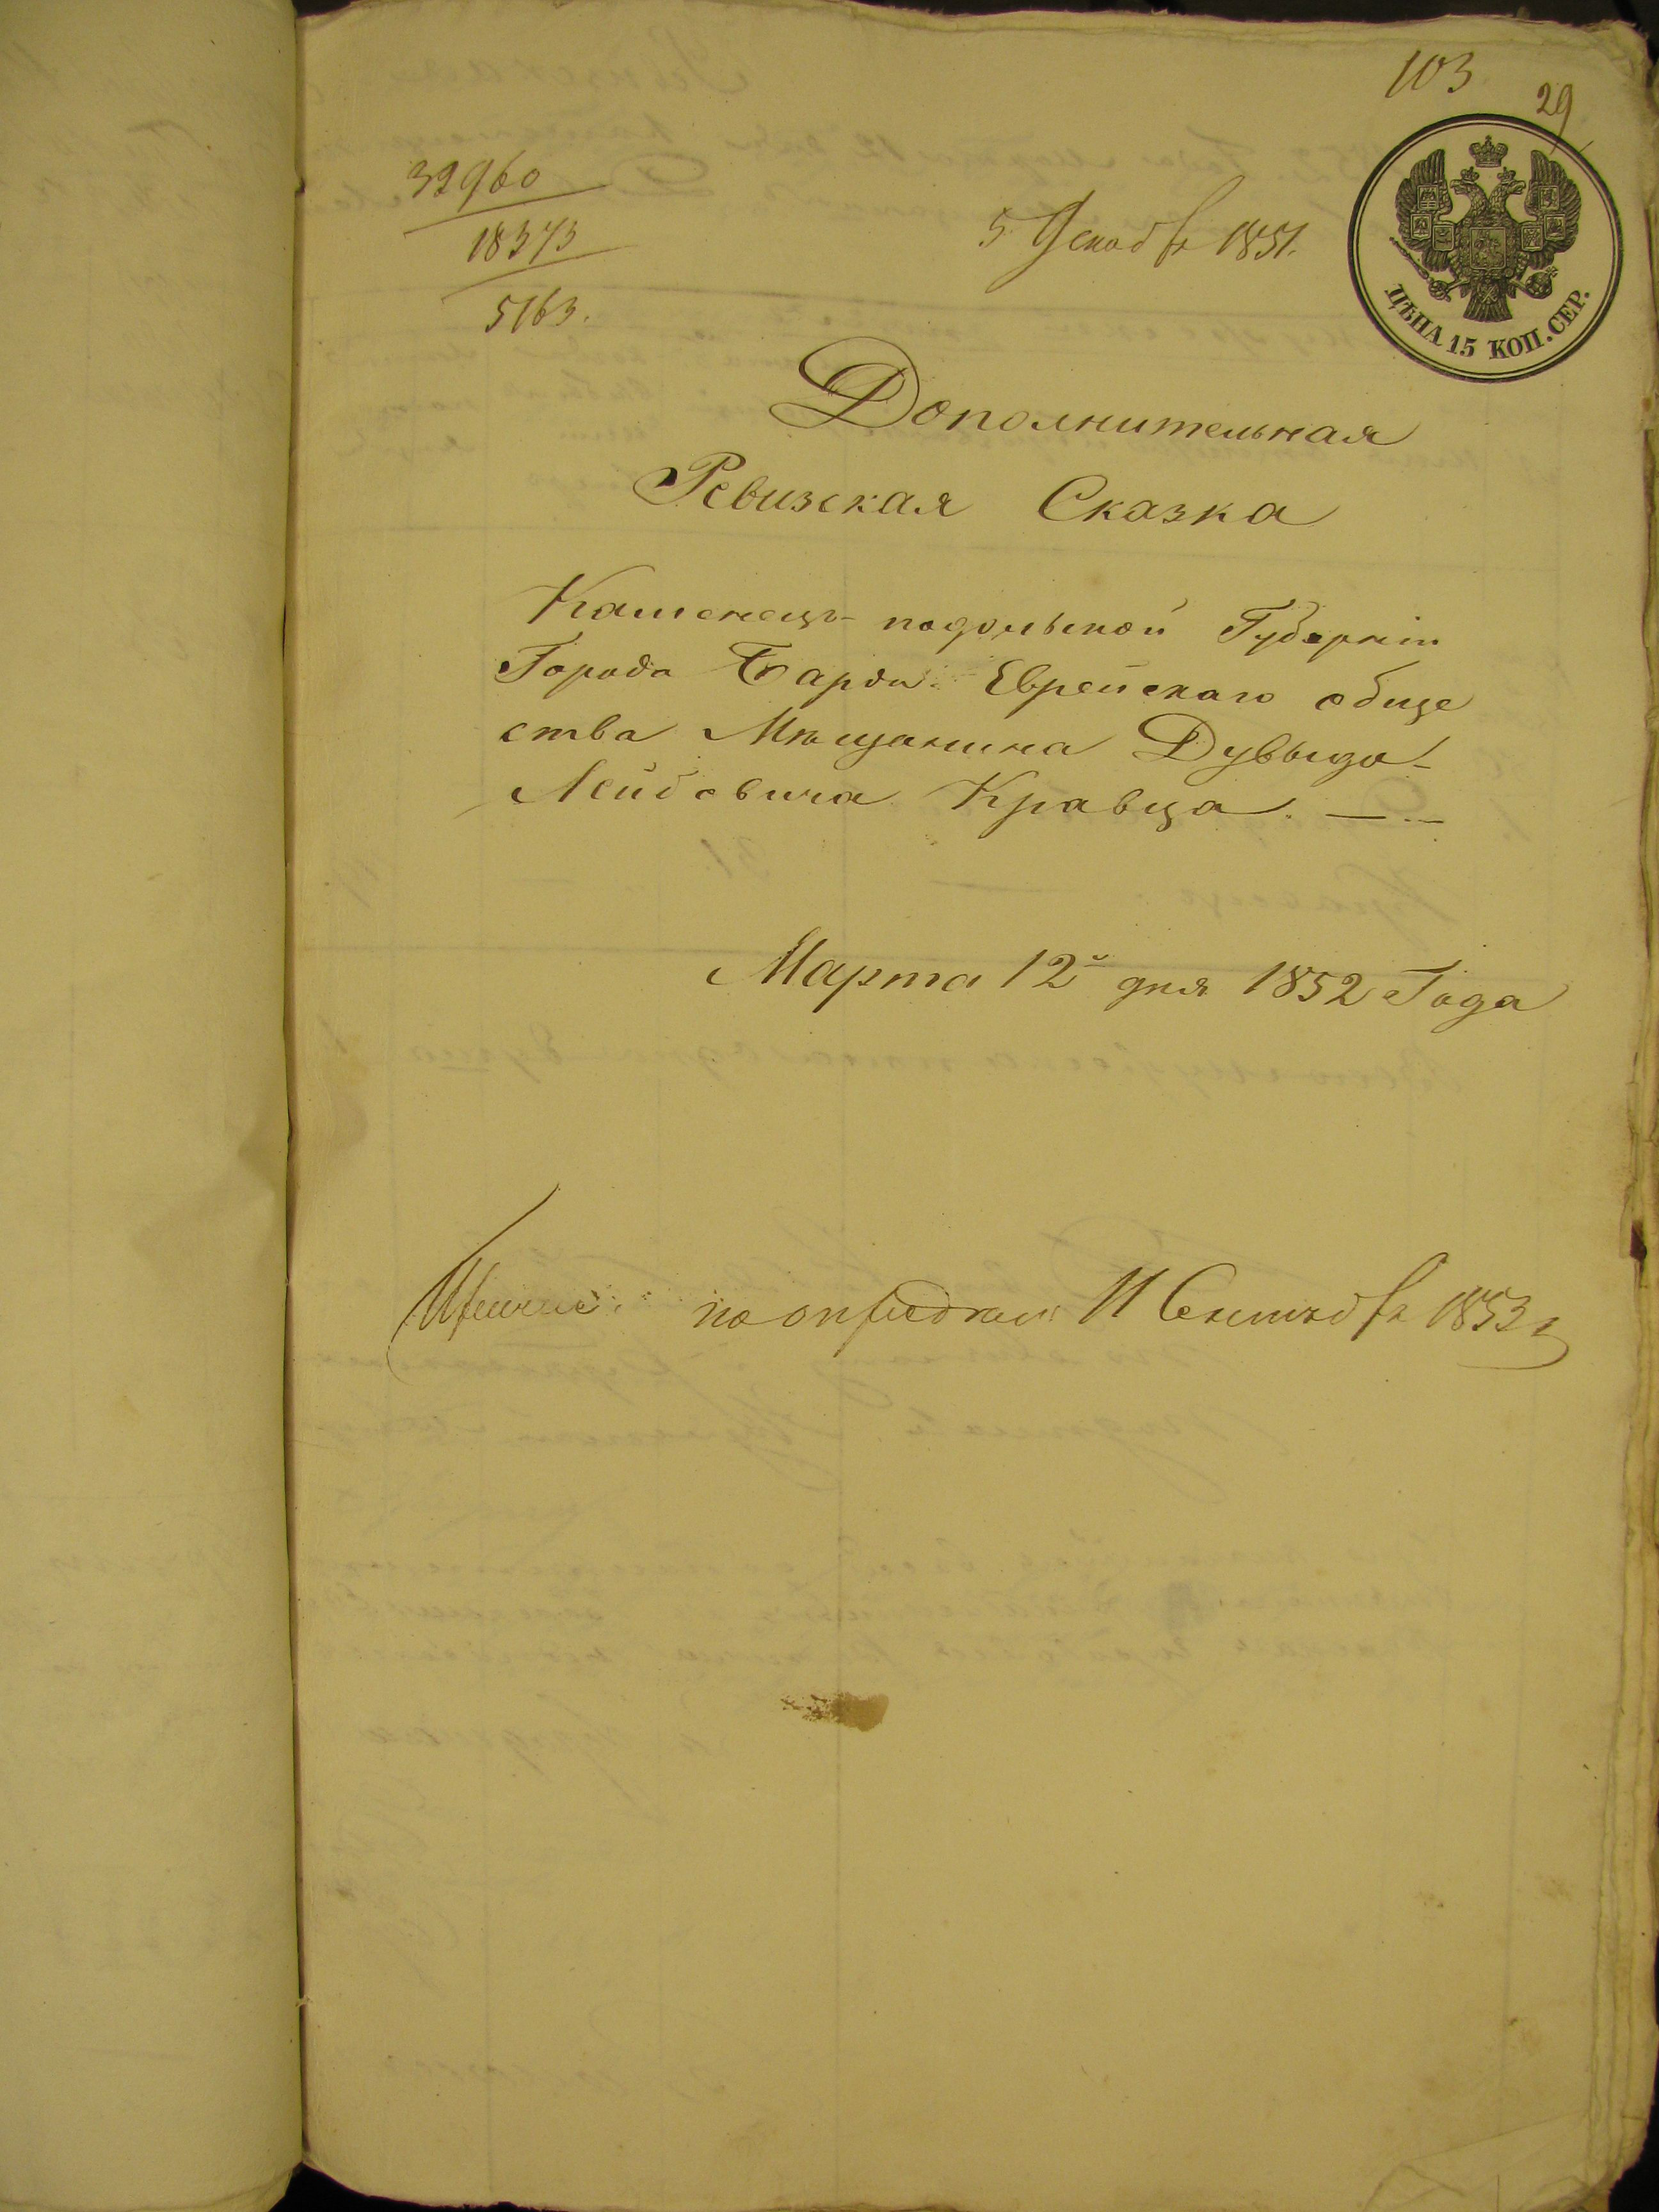 103
29
32960
18373
5163.
5 Декабр 1851.
ЦѢНА 15 КОП. СЕР.
Дополнительная
Ревизская Сказка
Каменецъ-подольской Губерніи
Города Бара Еврейскаго обще
ства Мѣщанина Дувыда
Лейбовича Кравца.
Марта 12 дня 1852 Года
по 11 Сентяб 1853